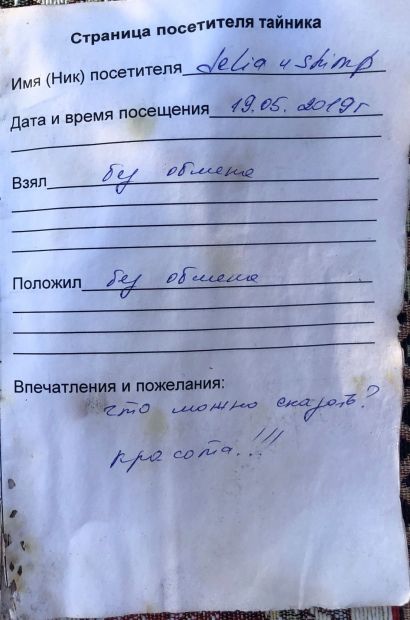 Страница посетителя тайника
Имя (Ник) посетителя Lelia и shimp
Дата и время посещения 19.05.2019г
Взял без обмена
Положил без обмена
Впечатления и пожелания:
что можно сказать?
красота!!!